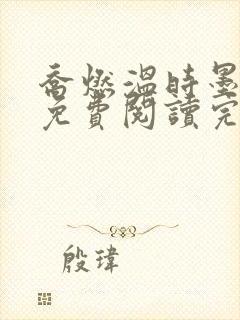 喬燃溫時墨
免費閱讀完
殷瑋